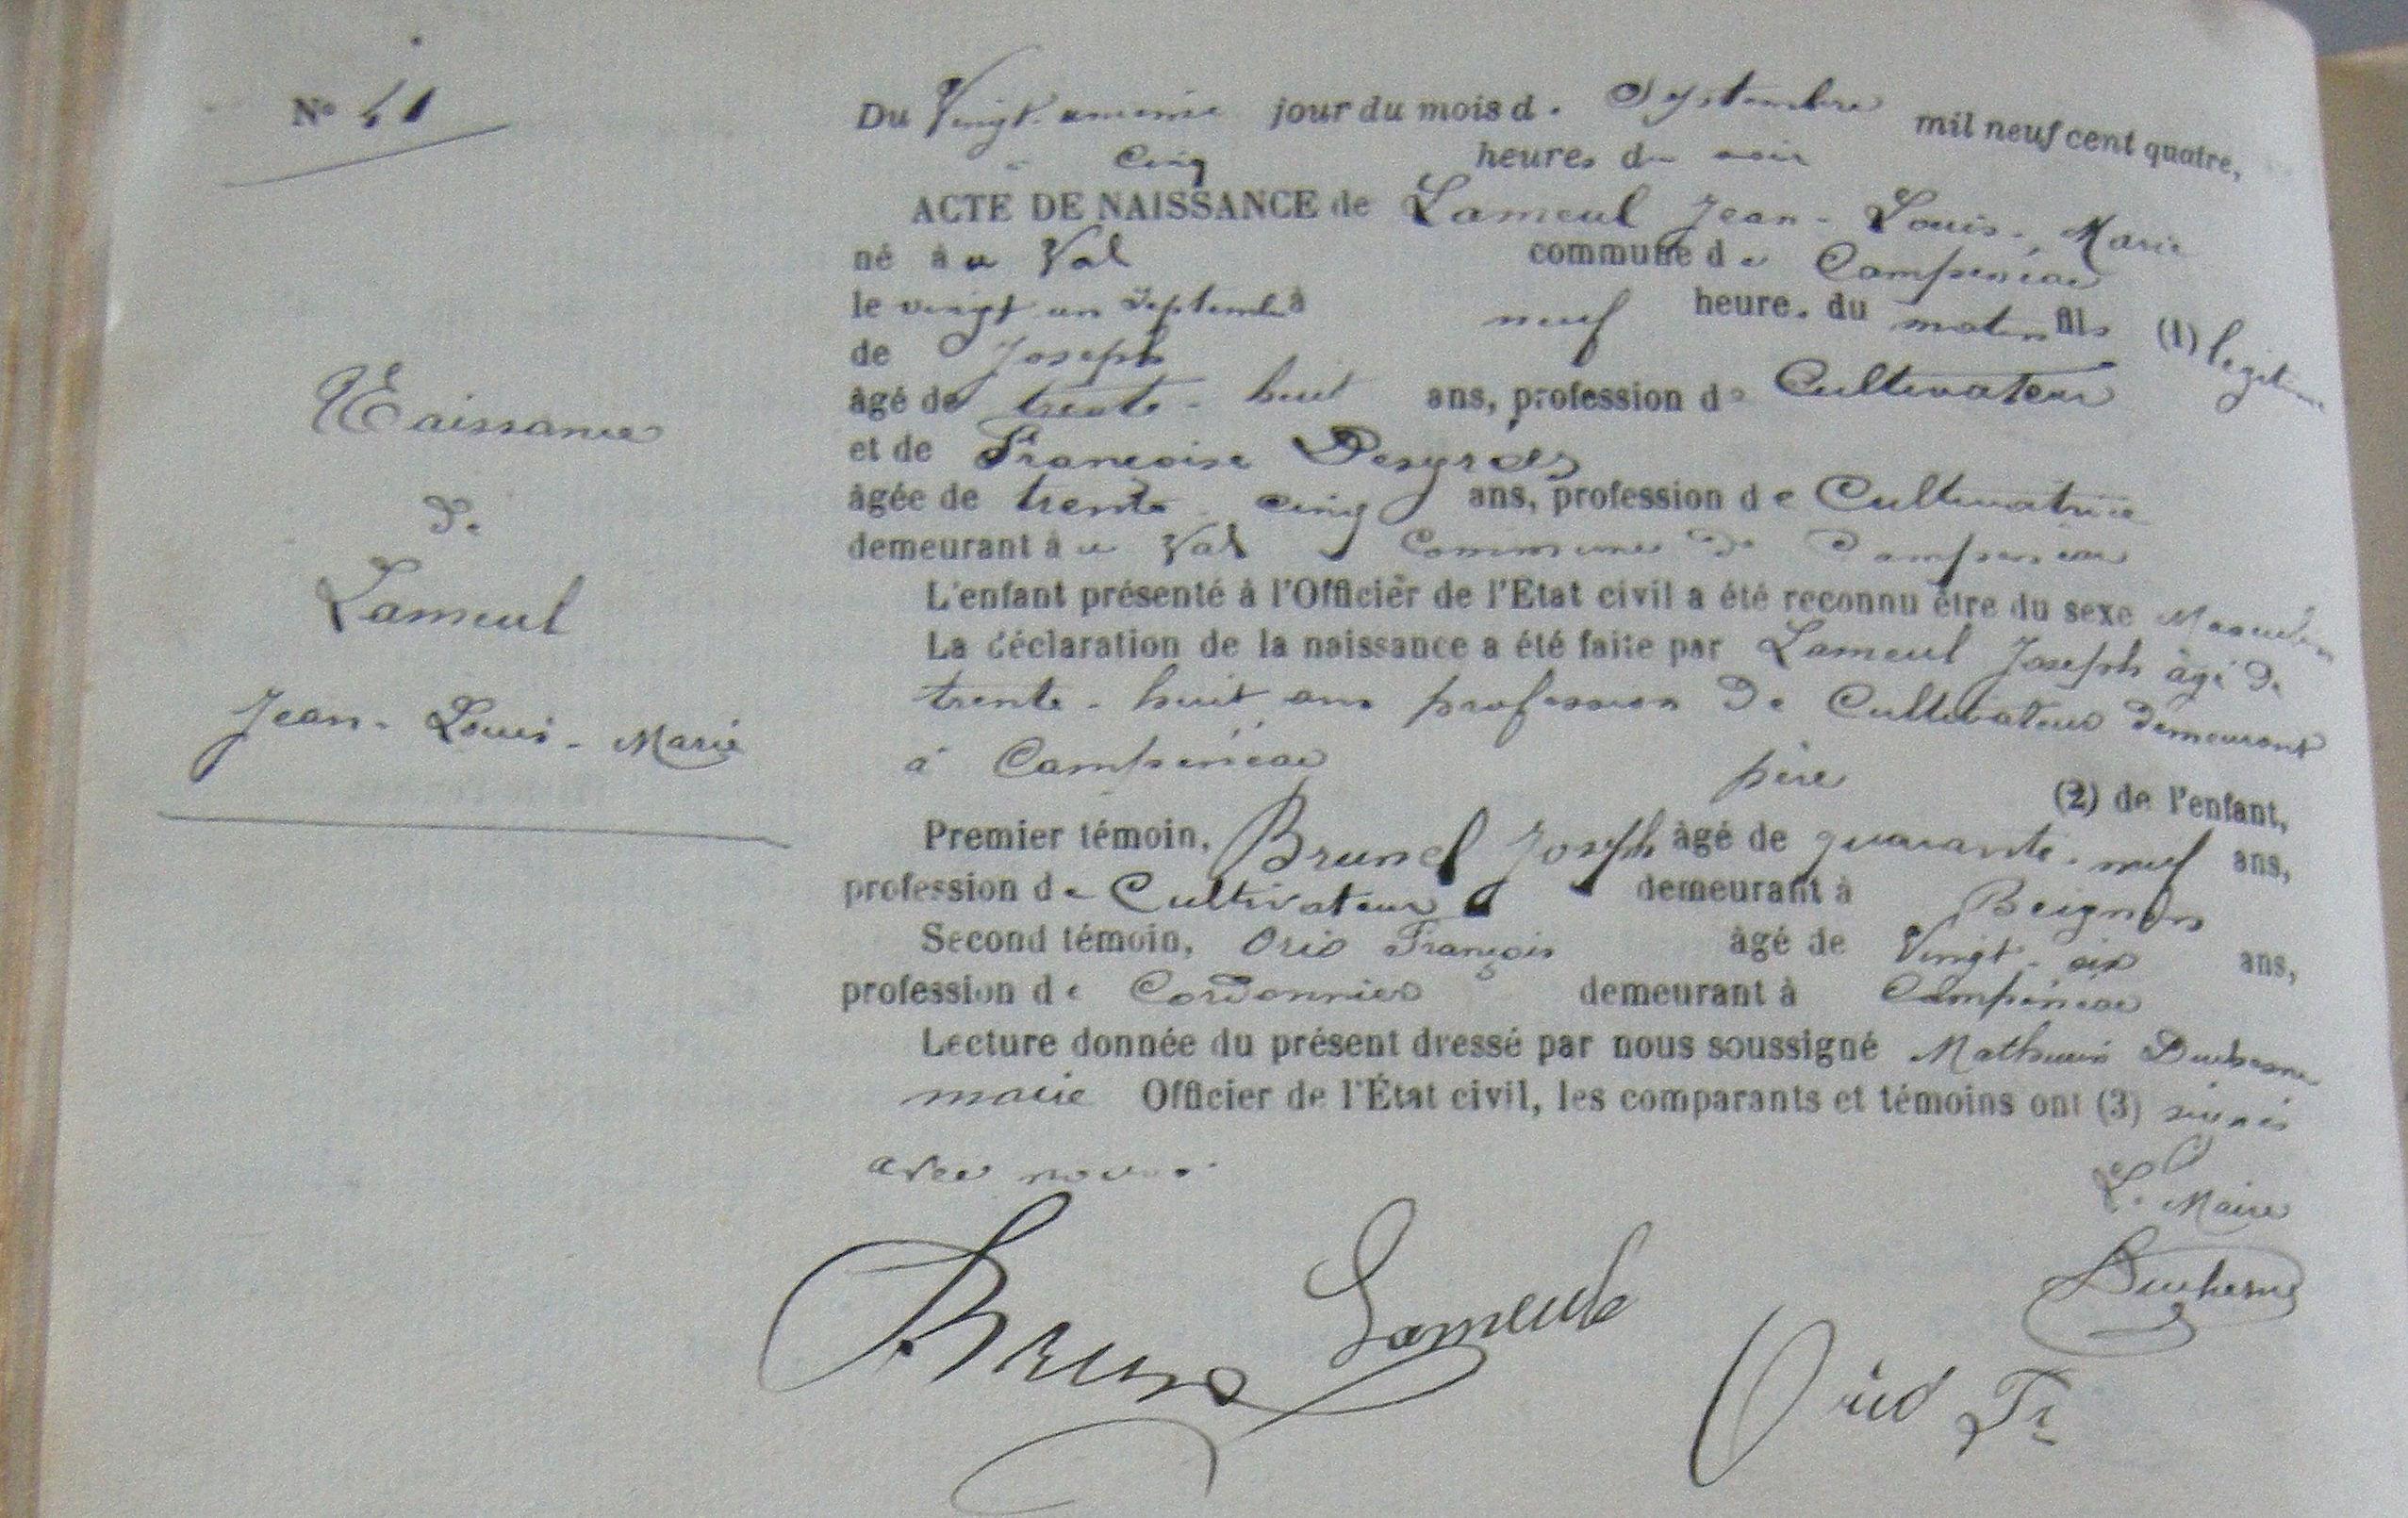 Nº 41
Du Vingt-unieme jour du mois de Septembre mil neuf cent quatre,
à Cinq heures du soir
ACTE DE NAISSANCE de Lameul Jean-Louis-Marie
né à u Val commune de Campénéac
le vingt un Septembre à neuf heures du matin fils (1) legitime
de Joseph
âgé de trente-huit ans, profession de Cultivateur
et de Françoise
âgée de trente cinq ans, profession de Cultivatrice
demeurant à u Val Commune de Campénéac
L'enfant présenté à l'Officier de l'Etat civil a été reconnu être du sexe Masculin
La déclaration de la naissance a été faite par Lameul Joseph âgé de
trente-huit ans profession de Cultivateur demeurant
à Campénéac père (2) de l'enfant,
Premier témoin, Brunel Joseph âgé de quarante-neuf ans,
profession de Cultivateur demeurant à Beignon
Second témoin, Orio François âgé de Vingt-six ans,
profession de Cordonnier demeurant à Campénéac
Lecture donnée du présent dressé par nous soussigné Mathurin Duchesne
maire Officier de l'État civil, les comparants et témoins ont (3) signés
avec nous.
Le Maire
Duchesne
Lameule
Orio Fr
Naissance
de
Lameul
Jean-Louis-Marie